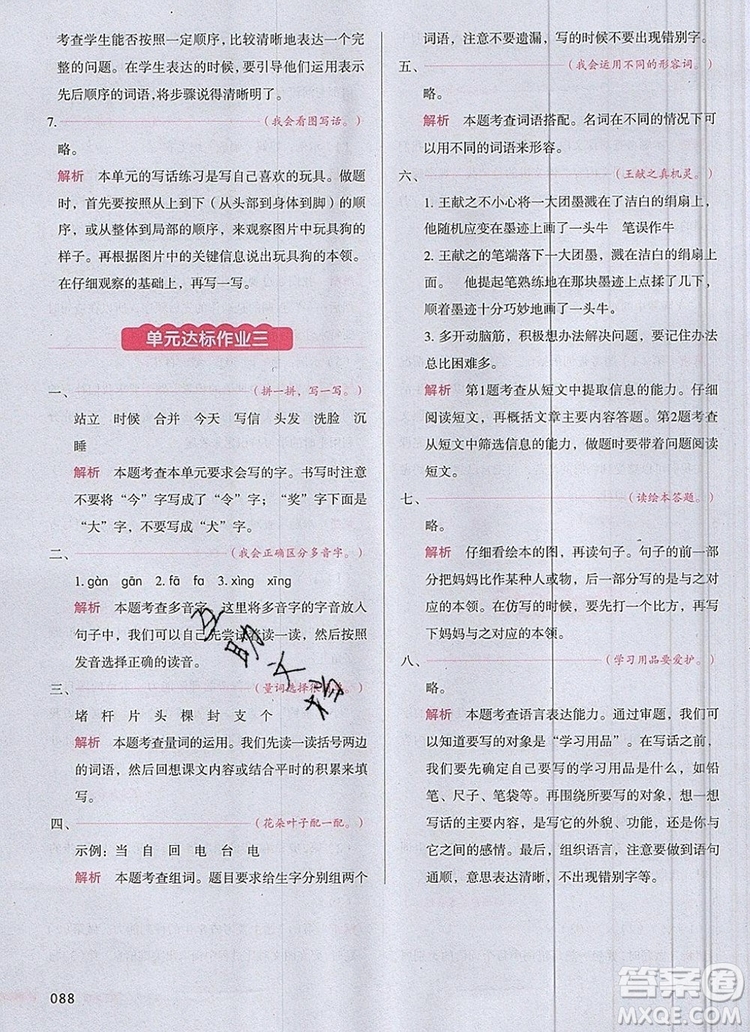 考查学生能否按照一定顺序，比较清晰地表达一个完
整的问题。在学生表达的时候，要引导他们运用表示
先后顺序的词语，将步骤说得清晰明了。
7.（我会看图写话。）
略。
解析 本单元的写话练习是写自己喜欢的玩具。做题
时，首先要按照从上到下（从头部到身体到脚）的
顺序或从整体到局部的顺序，来观察图片中玩具狗的
样子。再根据图片中的关键信息说出玩具狗的本领。
在仔细观察的基础上，再写一写。
单元达标作业三
一、（拼一拼，写一写。）
站立 时候 合并 今天 写信 头发 洗脸 沉
睡
解析 本题考查本单元要求会写的字。书写时注意
不要将“今”字写成了“令”字；“奖”字下面是
“大”字，不要写成“犬”字。
二、（我会正确区分多音字。）
1. gàn gān 2. fā fa 3. xìng xīng
解析 本题考查多音字。这里将多音字的字音放入
句子中，我们可以自己先尝试着读一读，然后按照
发音选择正确的读音。
三、（量词选择很准确。）
堵 杆 片 头 棵 封 支 个
解析 本题考查量词的运用。我们先读一读括号两边
的词语，然后回想课文内容或结合平时的积累来填一
填。
四、（花朵叶子配一配。）
示例：当 自 回 电 台 电
解析 本题考查组词。题目要求给生字分别组两个
088
词语，注意不要遗漏，写的时候不要出现错别字。
五、（我会运用不同的形容词。）
略。
解析 本题考查词语搭配。名词在不同的情况下可
以用不同的词语来形容。
六、（王献之真机灵。）
1. 王献之不小心将一大团墨溅在了洁白的绢扇上，
他随机应变在墨迹上画了一头牛 笔误作牛
2. 王献之的笔端落下一大团墨，溅在洁白的绢扇上
面 他提起笔熟练地在那块墨迹上画了起来，几
下就使墨迹十分巧妙地变成了一头牛
3. 多开动脑筋，积极想办法解决问题，办法总
总比困难多。
解析 第1题考查从短文中提取信息的能力。仔细
阅读短文，再概括文章主要内容答题。第2题考查
从短文中筛选信息的能力，做题时要带着问题阅读
短文。
七、（读绘本答题。）
略。
解析 仔细看绘本的图，再读句子。句子的前半部
分把妈妈比作某种人或物，后半部分写出了妈妈
与之对应的本领。在仿写的时候，也要写出比喻
下妈妈与之对应的本领。
八、（学习用品要爱护。）
略。
解析 本题考查语言表达能力。通过审题，我们可
以知道要写的对象是“学习用品”，那么首先要
确定自己要写的学习用品是什么，如铅
笔、尺子、笔袋等。然后围绕所要写的对象，
写话的内容可以是写它的外观、功能，还可以写你与
之间的感情。最后，组织语言，注意要做到语句
通顺，意思表达清晰，不出现错别字等。
互助文档
答案圈
MXQE.COM